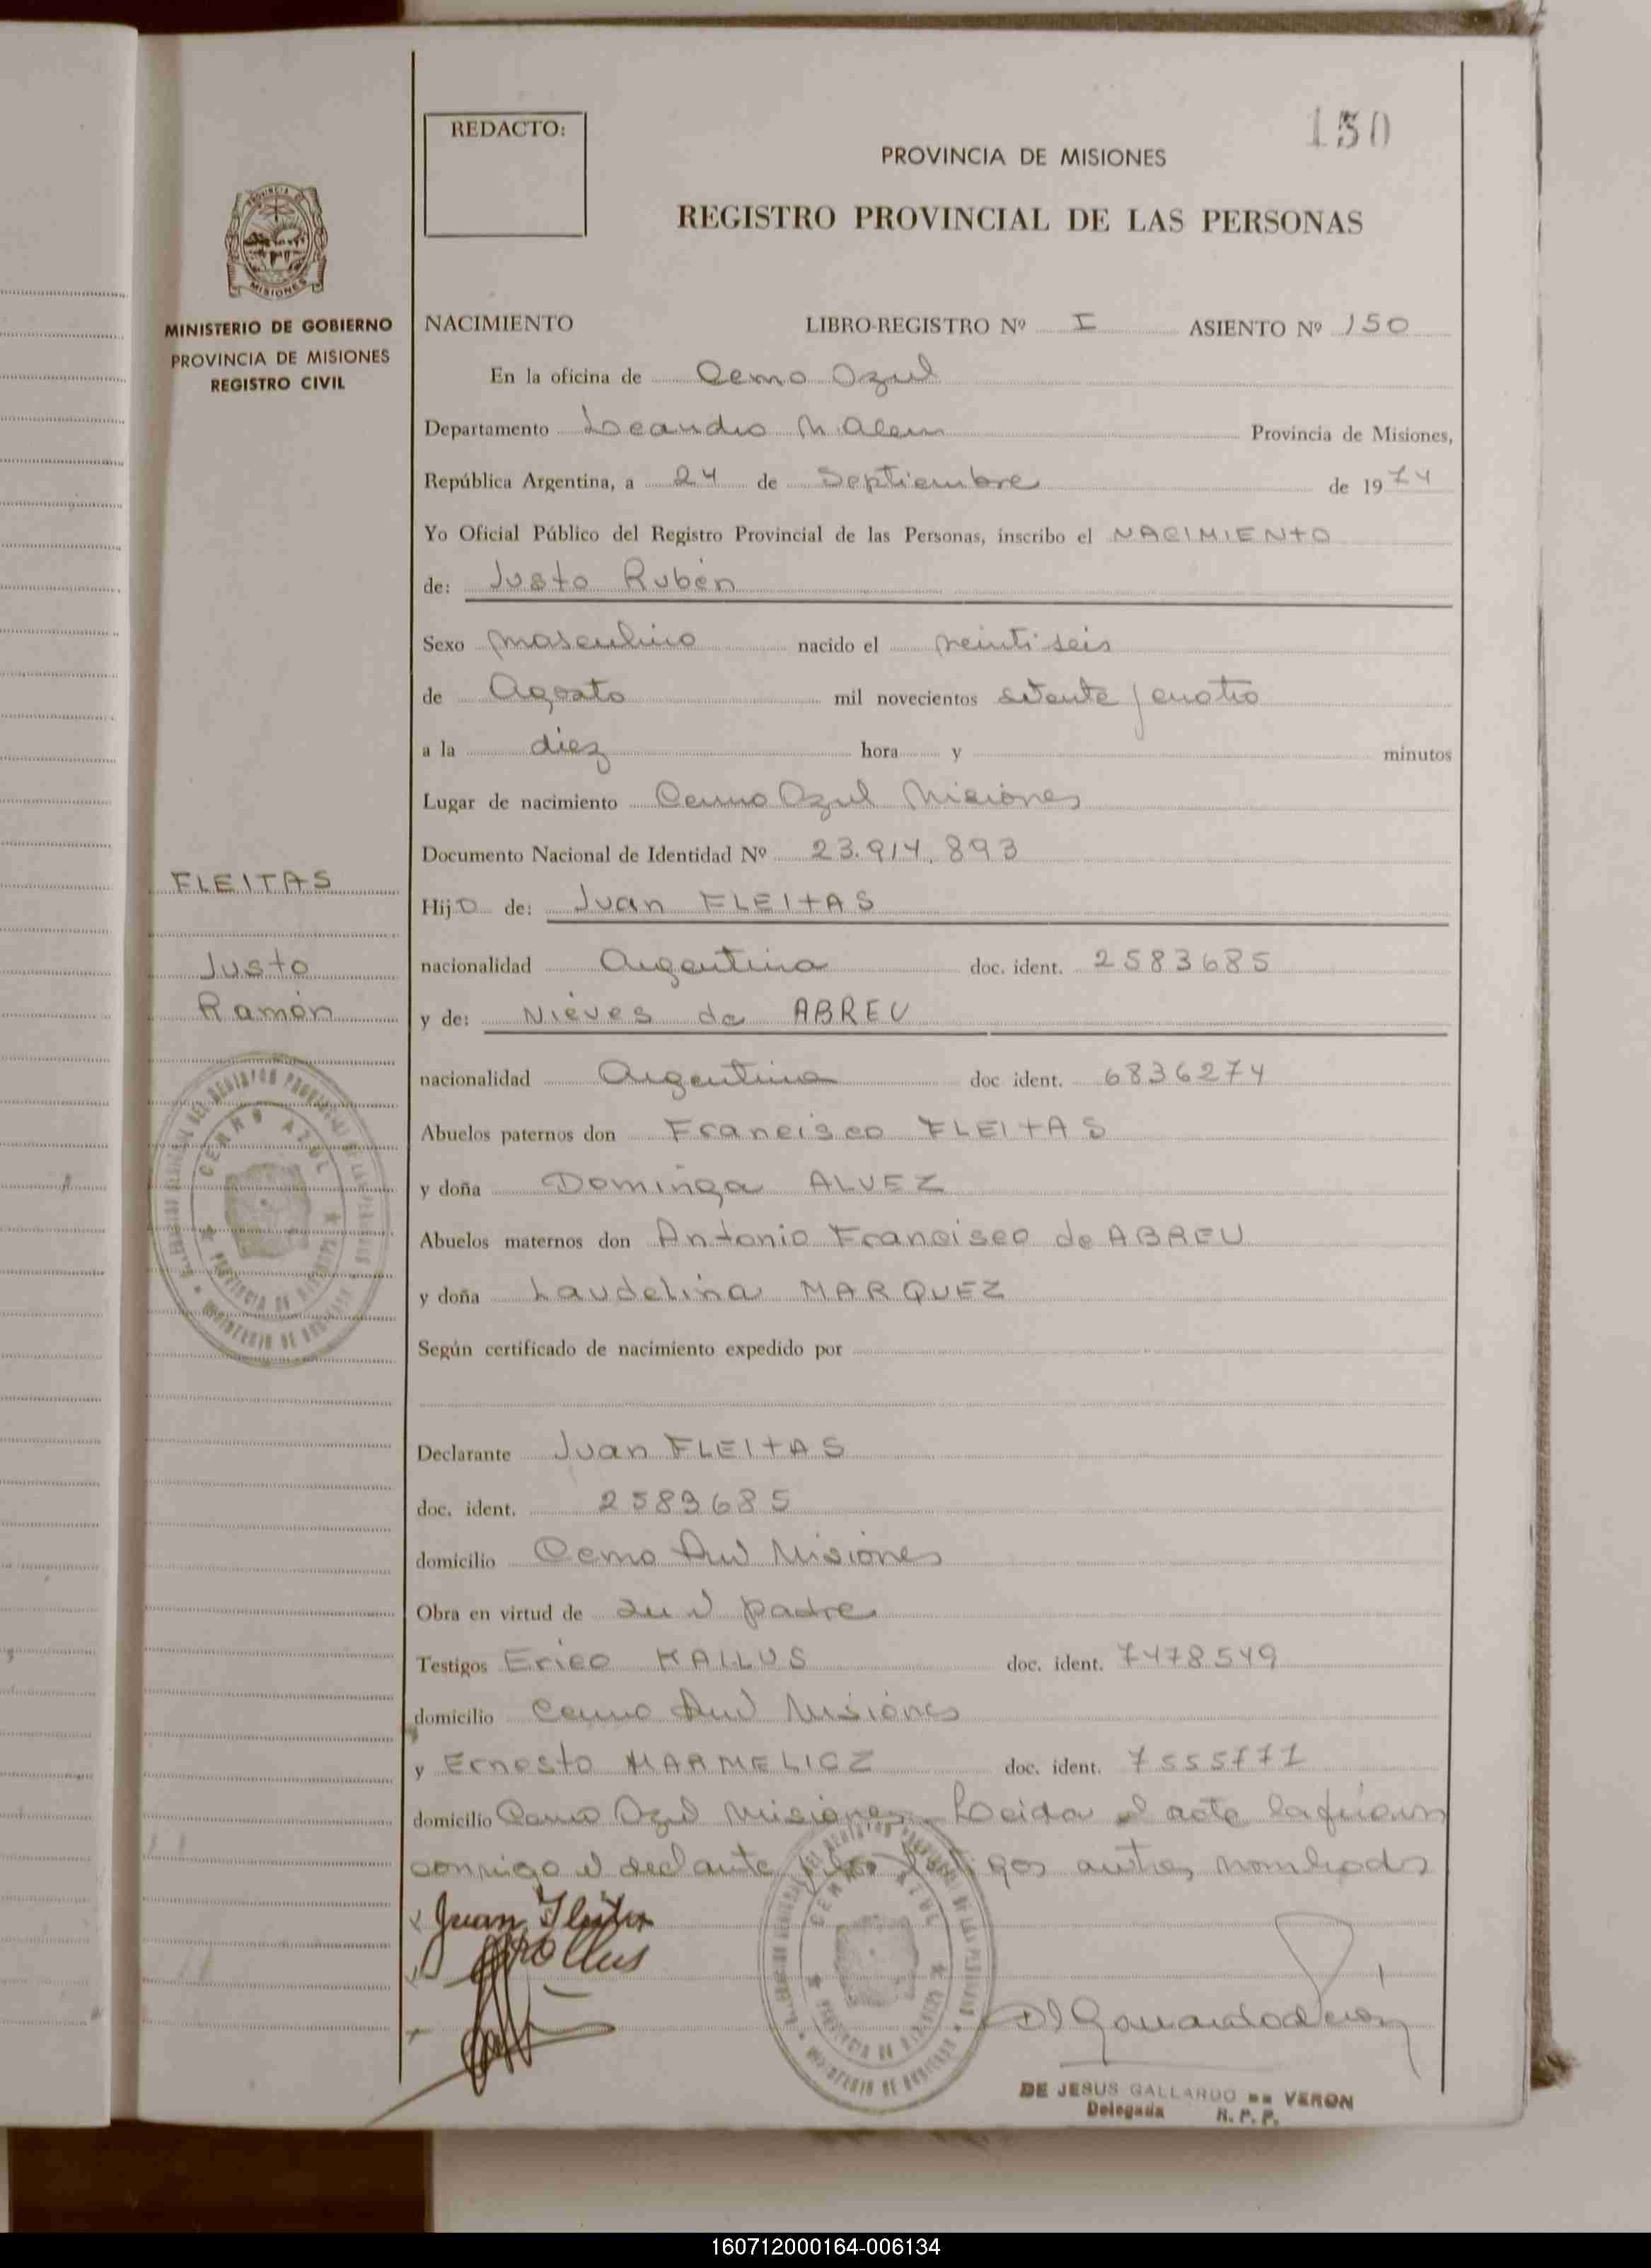 150
REDACTO:
PROVINCIA DE MISIONES
REGISTRO PROVINCIAL DE LAS PERSONAS
PROVINCIA
MISIONES
MINISTERIO DE GOBIERNO
PROVINCIA DE MISIONES
REGISTRO CIVIL
NACIMIENTO LIBRO-REGISTRO Nº I ASIENTO Nº 150
En la oficina de Cerro Azul
Departamento Leandro N. Alem Provincia de Misiones,
República Argentina, a 24 de Septiembre de 1974
Yo Oficial Público del Registro Provincial de las Personas, inscribo el NACIMIENTO
de: Justo Rubén
Sexo masculino nacido el veintiseis
de Agosto mil novecientos setenta y cuatro
a la diez hora y minutos
Lugar de nacimiento Cerro Azul Misiones
Documento Nacional de Identidad Nº 23.914.893
FLEITAS
Hijo de: Juan FLEITAS
Justo
nacionalidad Argentina doc. ident. 2583685
Ramón
y de: Nieves de ABREU
nacionalidad Argentina doc ident. 6836274
Abuelos paternos don Francisco FLEITAS
y doña Dominga ALVEZ
Abuelos maternos don Antonio Francisco de ABREU
y doña Laudelina MARQUEZ
CERRO AZUL
PROVINCIA DE MISIONES
Según certificado de nacimiento expedido por
Declarante Juan FLEITAS
doc. ident. 2583685
domicilio Cerro Azul Misiones
Obra en virtud de ser el padre
Testigos Erico KALLUS doc. ident. 7478549
domicilio Cerro Azul Misiones
y Ernesto MARMELICZ doc. ident. 7555771
domicilio Cerro Azul Misiones Leida el acta la firman
conmigo el declarante y los testigos antes nombrados
Juan Fleitas
CERRO AZUL
DE JESUS GALLARDO DE VERON
Delegada R. P. P.
160712000164-006134